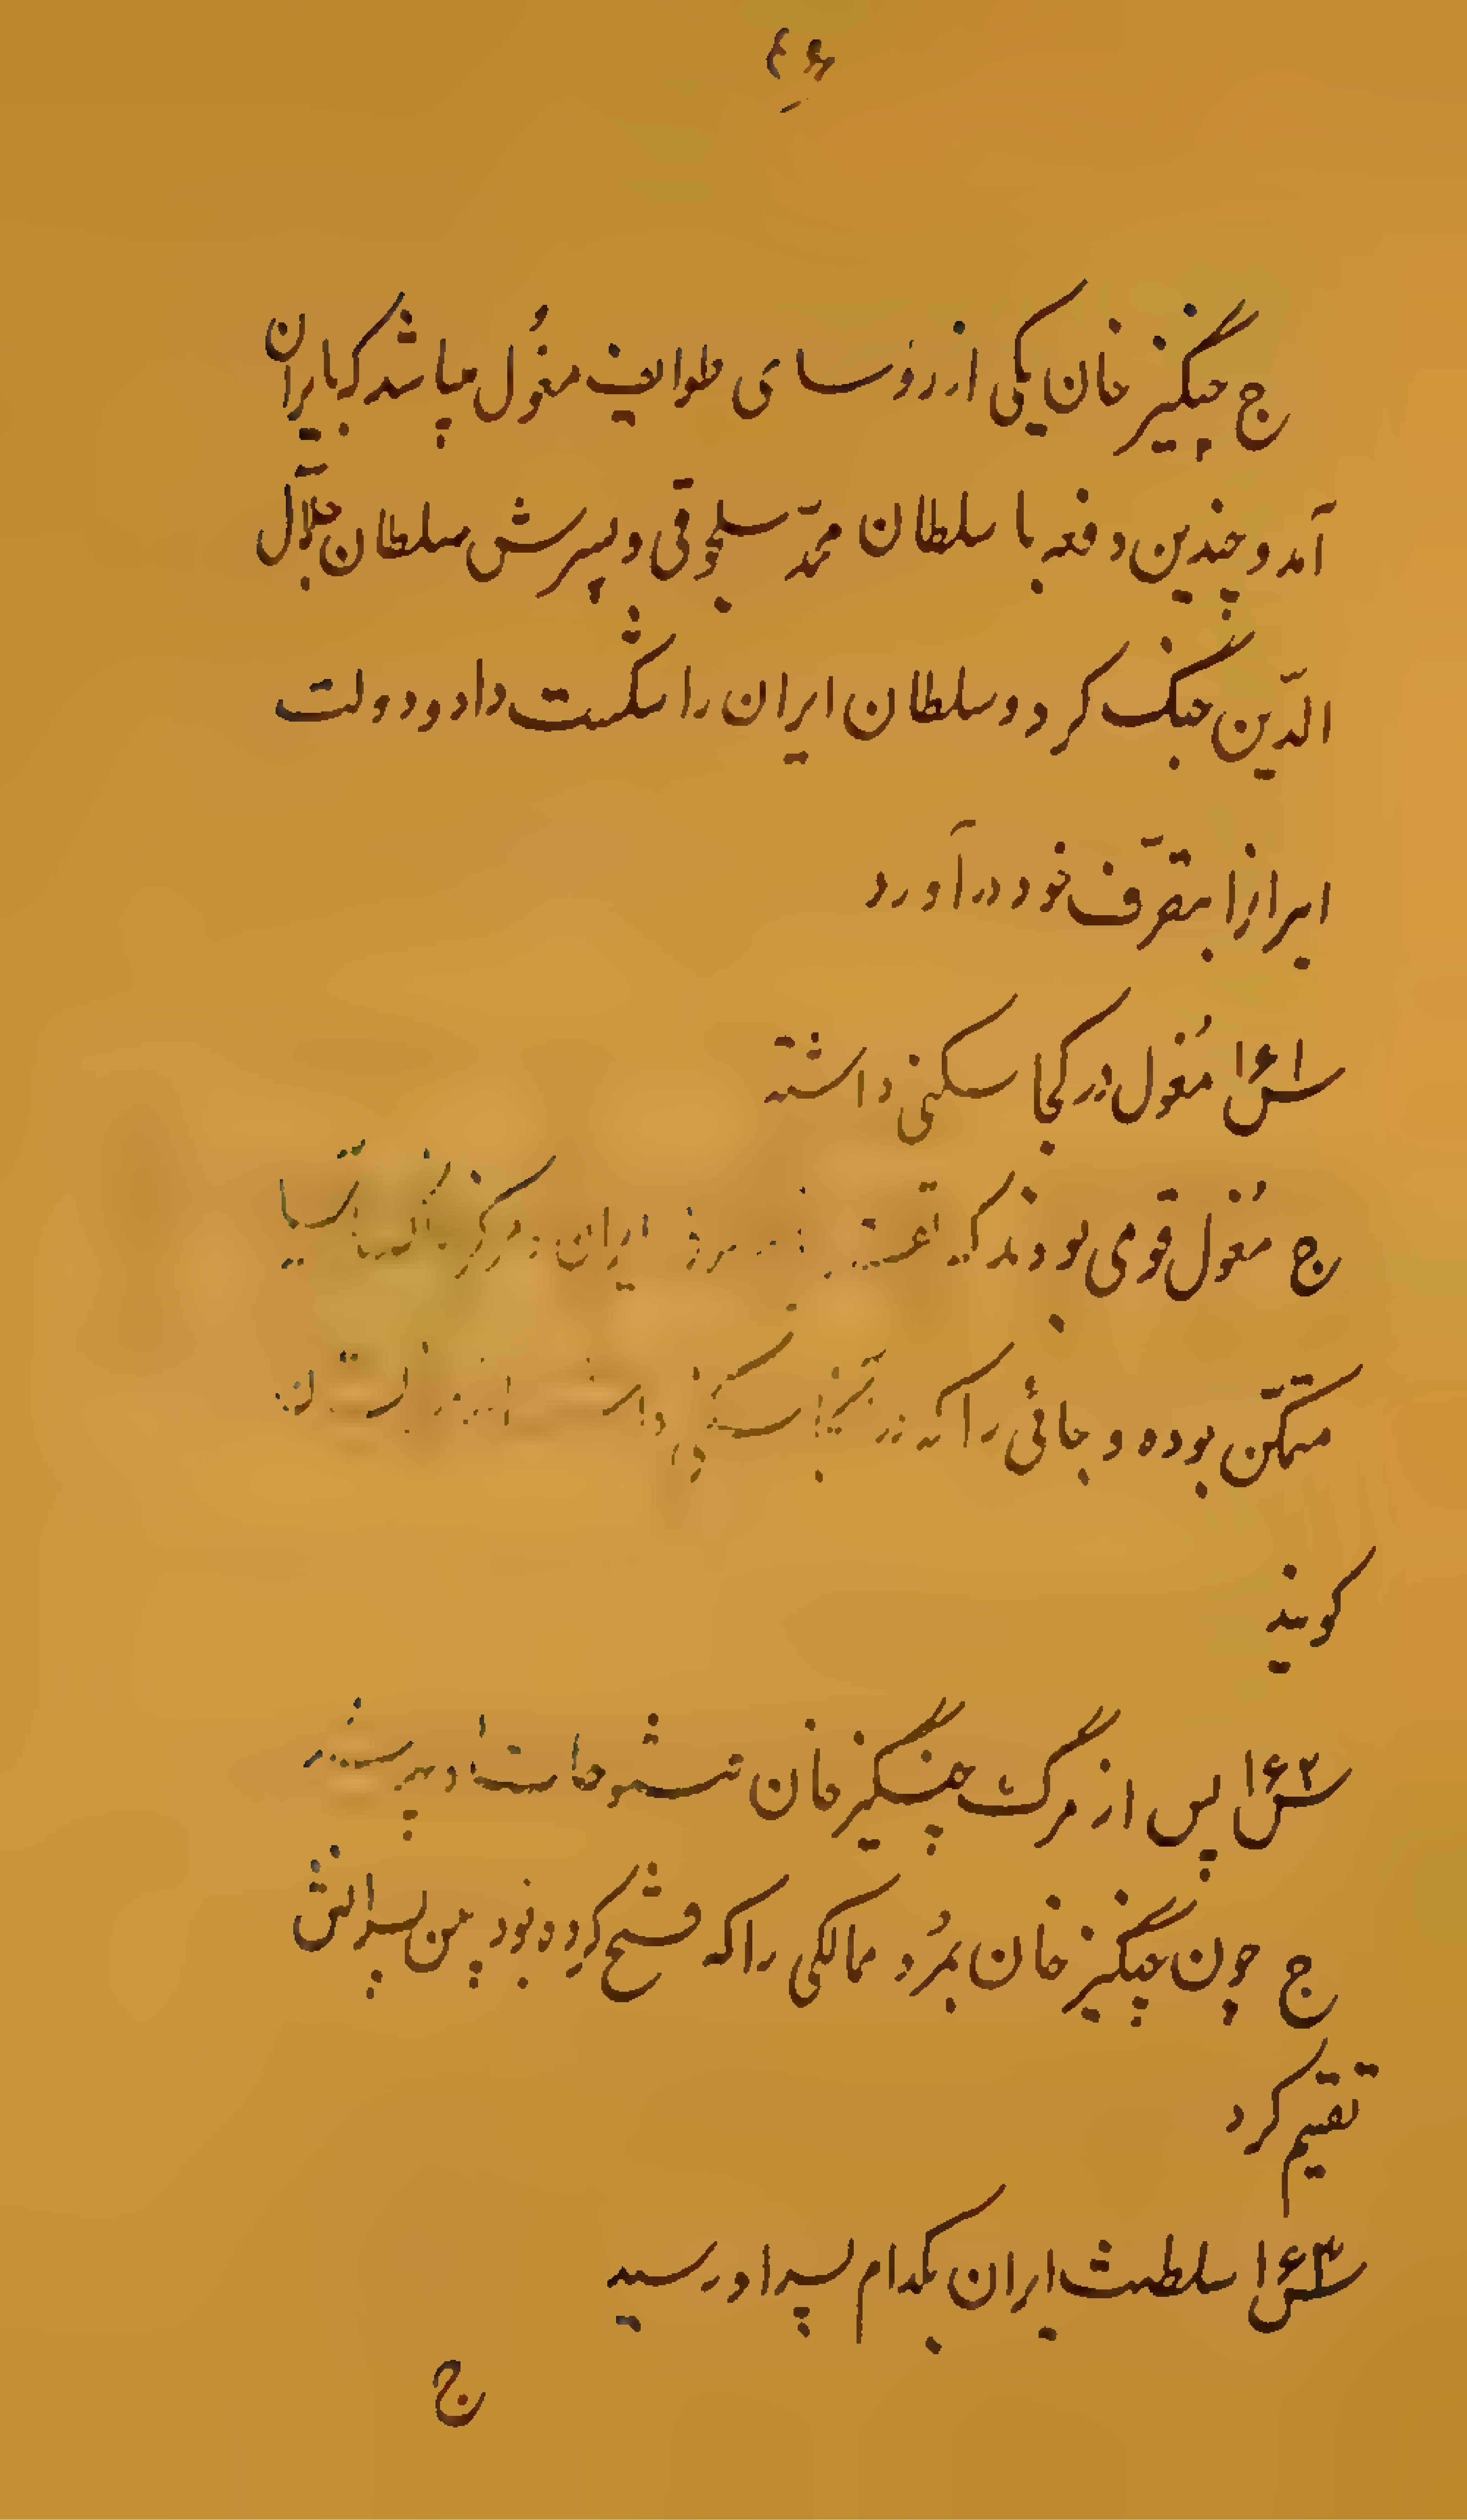 ۴۶
ج چنگیز خان یکی از رؤسای طوایف مغُول میباشد که بایران
آمد و چندین دفعه با سلطان محمّد سلجوقی و پسرش سلطان جلال
الدّین جنگ کرد و سلطان ایران را شکست داد و دولت
ایرانرا بتصرّف خود درآورد
س۱۶۱ مُغول در کجا سکنی داشته
ج مُغول قومی بودند که ایران در مرکز
متمکّن بوده و جائی را که در آنجا سکنی
گویند
س۱۶۲ پس از مرگ چنگیز خان متصرفات او بچه
ج چون چنگیز خان بمُرد ممالکی را که فتح کرده بود بین پسرانش
تقسیم کرد
س۱۶۳ سلطنت ایران بکدام پسر او رسید
ج